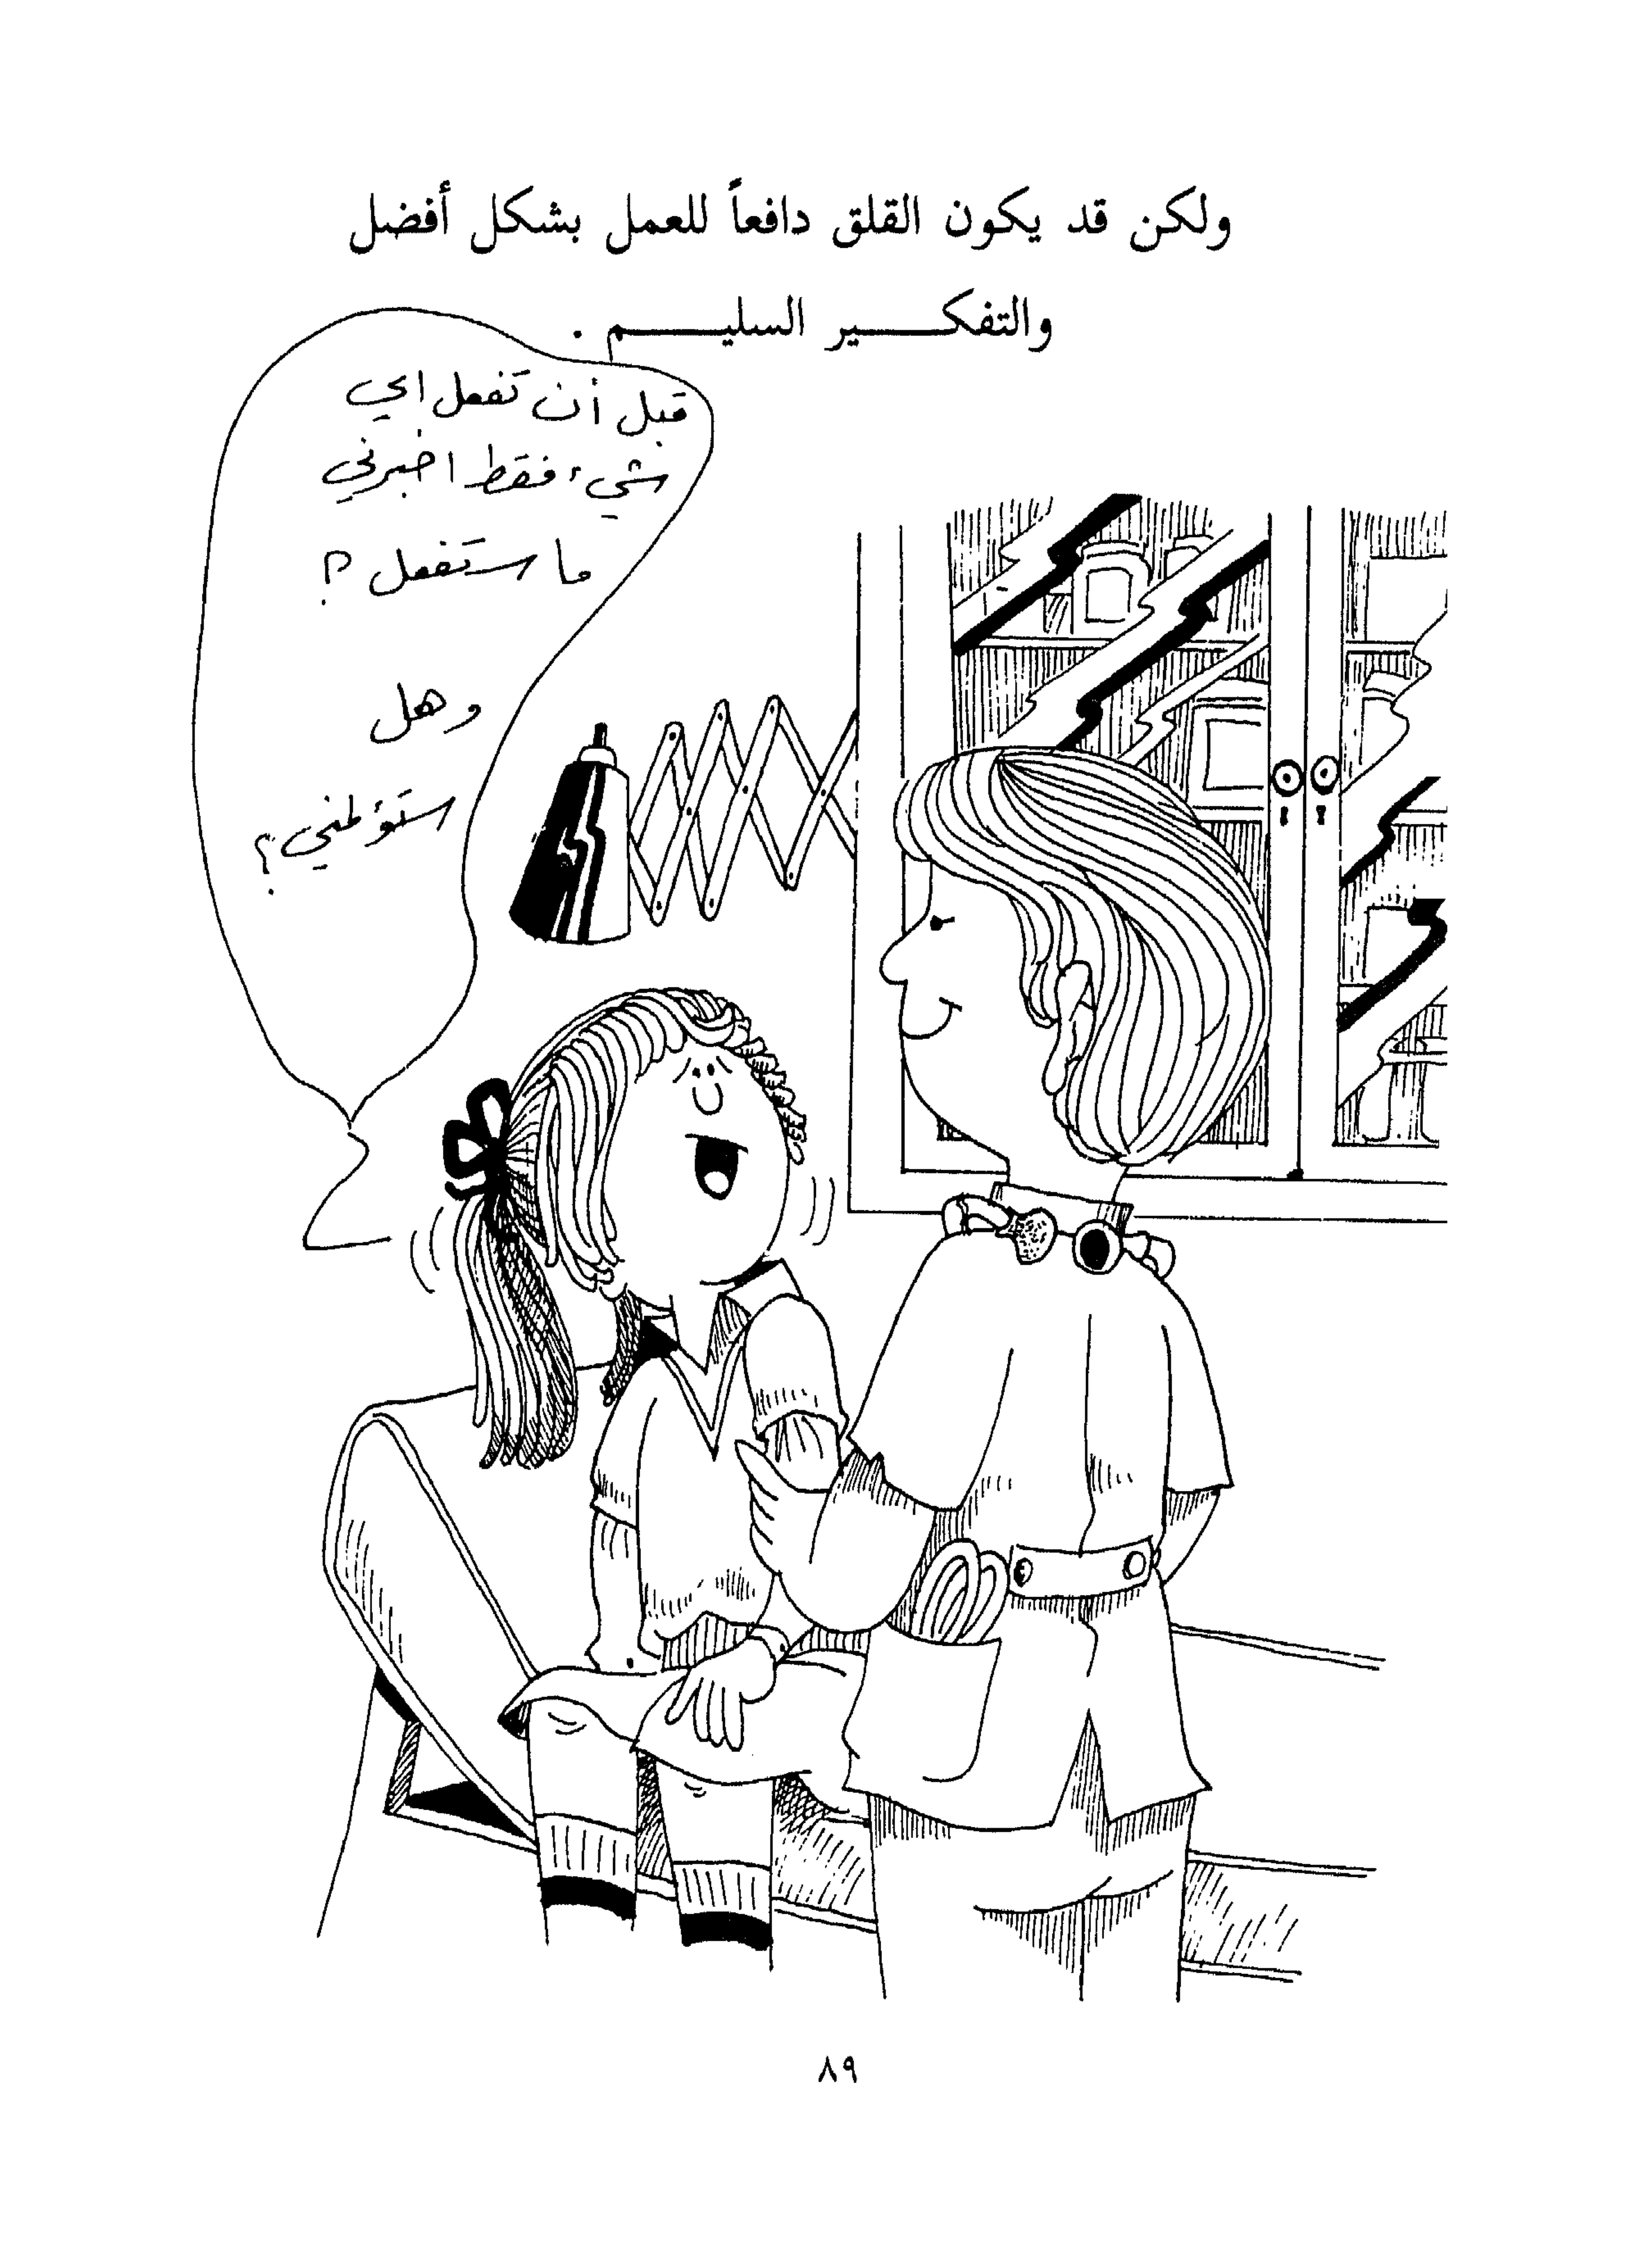 ولكن قد يكون القلق دافعاً للعمل بشكل أفضل
والتفكير السليم .
قبل أن تفعل اي
شيء فقط اخبرني
ما ستفعل ؟
وهل
ستؤلمني ؟
٨٩